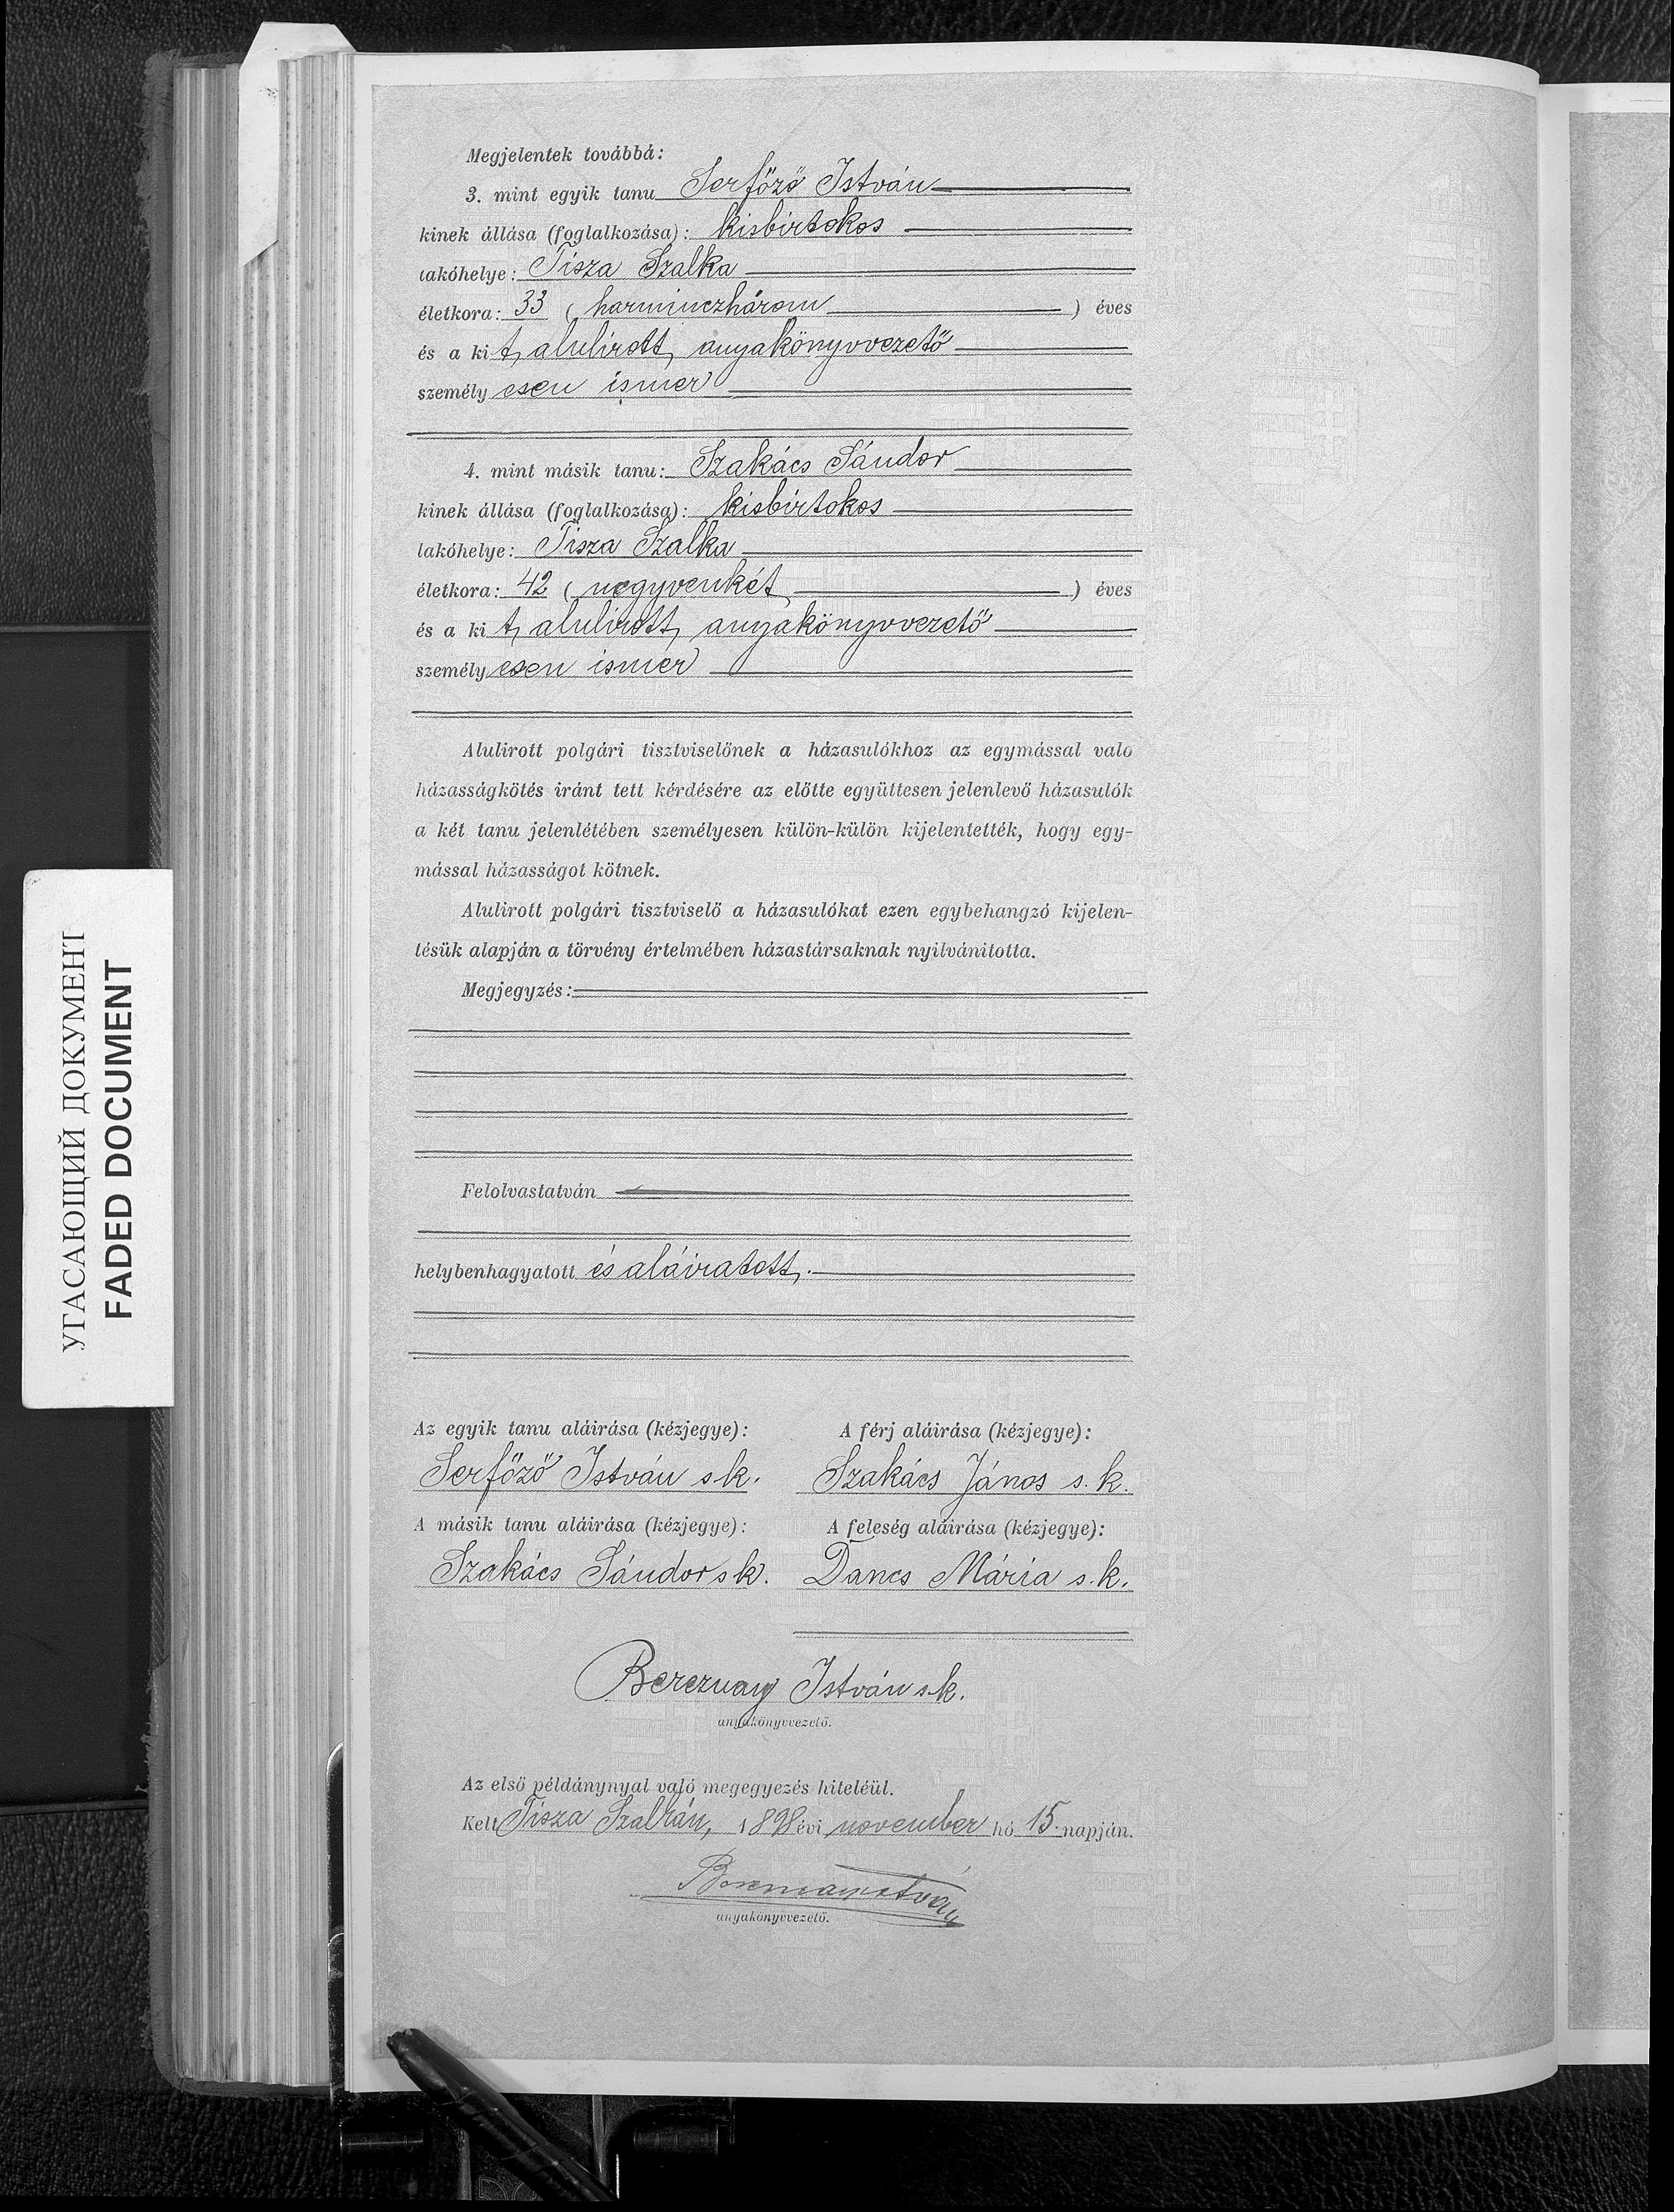 Megjelentek továbbá:
3. mint egyik tanu Serfőző István
kinek állása (foglalkozása): kisbirtokos
lakóhelye: Tisza Szalka
életkora: 33 (harminczhárom) éves
és a kit alulirott anyakönyvvezető
személyesen ismer
4. mint másik tanu: Szakács Sándor
kinek állása (foglalkozása): kisbirtokos
lakóhelye: Tisza Szalka
életkora: 42 (negyvenkét) éves
és a kit alulirott anyakönyvvezető
személyesen ismer
Alulirott polgári tisztviselőnek a házasulókhoz az egymással való
házasságkötés iránt tett kérdésére az előtte együttesen jelenlevő házasulók
a két tanu jelenlétében személyesen külön-külön kijelentették, hogy egy-
mással házasságot kötnek.
Alulirott polgári tisztviselő a házasulókat ezen egybehangzó kijelen-
tésük alapján a törvény értelmében házastársaknak nyilvánitotta.
Megjegyzés:
Felolvastatván
helybenhagyatott és aláiratott.
Az egyik tanu aláirása (kézjegye): A férj aláirása (kézjegye):
Serfőző István sk. Szakács János s. k.
A másik tanu aláirása (kézjegye): A feleség aláirása (kézjegye):
Szakács Sándor sk. Dancs Mária s. k.
Bereznay István s.k.
anyakönyvvezető.
Az első példánynyal való megegyezés hiteléül.
Kelt Tisza Szalkán, 1898 évi november hó 15. napján.
Bereznay István
anyakönyvvezető.
УГАСАЮЩИЙ ДОКУМЕНТ
FADED DOCUMENT